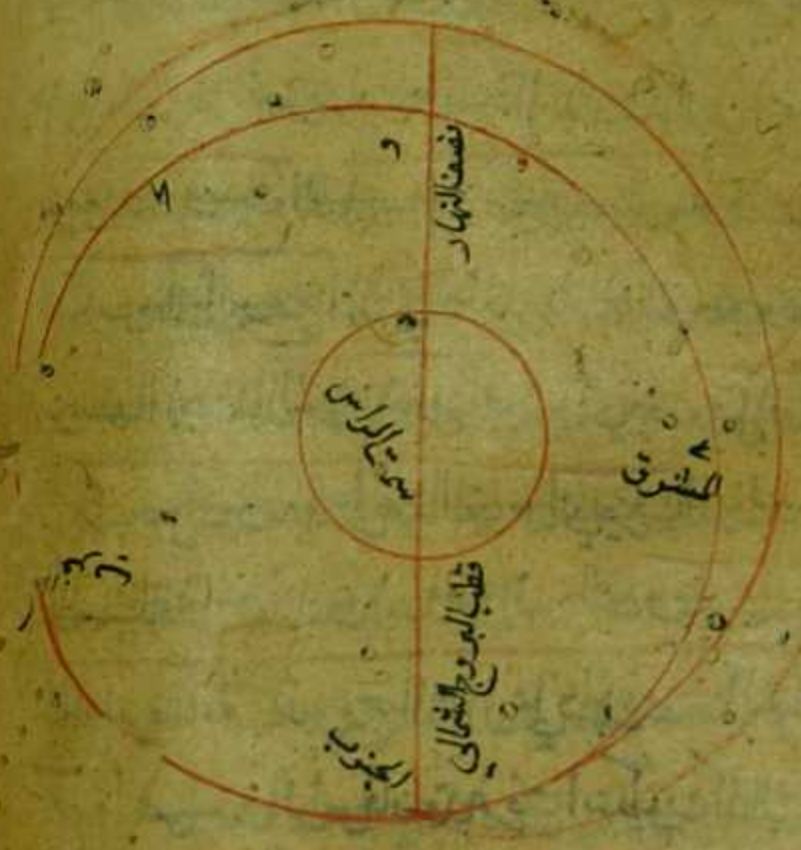 و
نصف النهار
سمت الراس
٨
المشرق
قطب البروج الشمالي
الجنوب